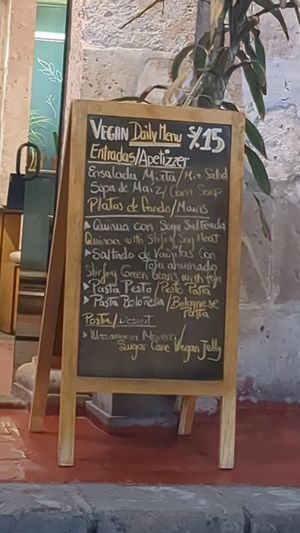 VEGAN Daily Menu S/.15
Entradas/Apetizzer
Ensalada Mixta/Mix Salad
Sopa de Maíz/Corn Soup
Platos de fondo/Mains
Quinua con Soya Salteada
Quinoa with Stirfry Soy Meat
Saltado de Vainitas con
Tofu ahumado
Stirfry Green Beans with tofu
Pasta Pesto/Pesto Pasta
Pasta Boloñesa/Bolognese
Pasta
Postre/Dessert
Mazamorra
Sugar Cane Vegan Jelly